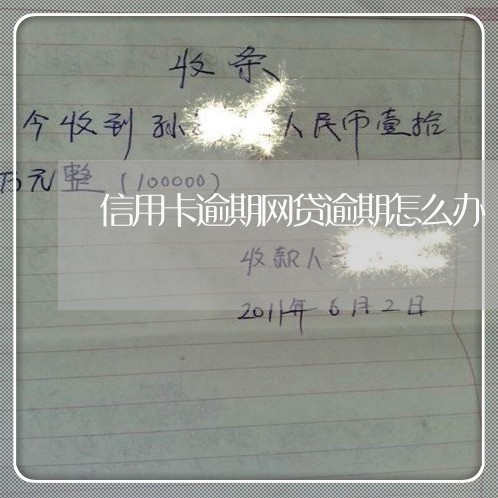 收条
今收到孙 人民币壹拾
万元整(100000)
信用卡逾期网贷逾期怎么办
收款人
2011年6月2日